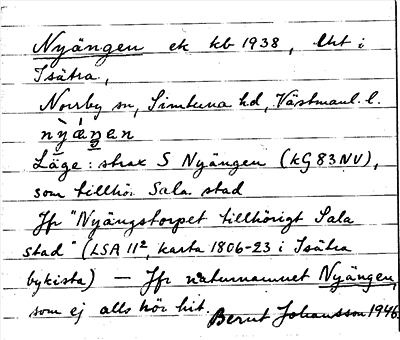 Nyängen ek kb 1938, Utt i
Isätra,
Norrby sn, Simtuna hd, Västmanl. l.
nỳáŋen
Läge: strax S Nyängen (kG 83 NV),
som tillhör Sala stad
Jfr "Nyängstorpet tillhörigt Sala
stad" (LSA 11², karta 1806-23 i Isätra
bykista) — Jfr naturnamnet Nyängen,
som ej alls hör hit. Bernt Johansson 1946.